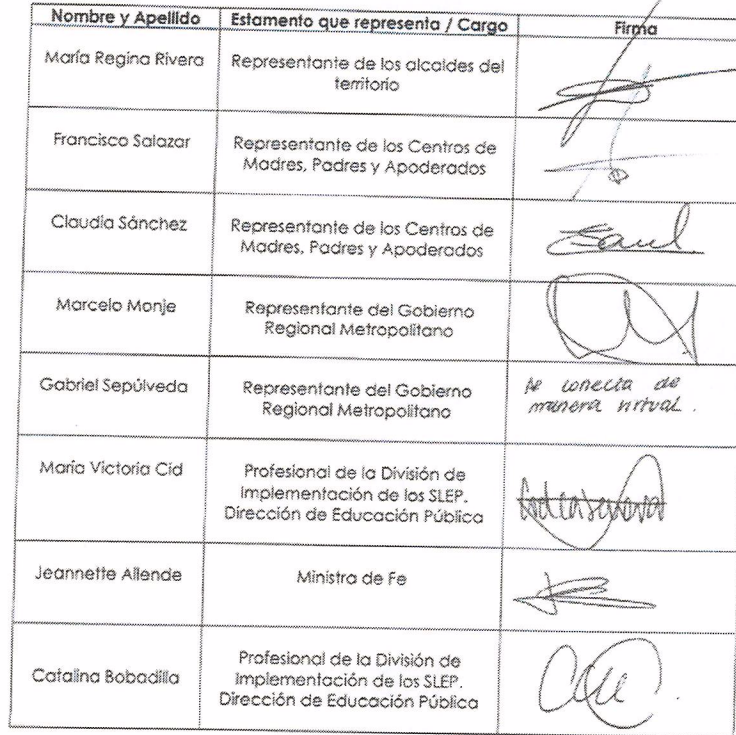 Nombre y Apellido Estamento que representa / Cargo Firma
María Regina Rivera Representante de los alcaldes del
territorio
Francisco Salazar Representante de los Centros de
Madres, Padres y Apoderados
Claudia Sánchez Representante de los Centros de
Madres, Padres y Apoderados
Marcelo Monje Representante del Gobierno
Regional Metropolitano
Gabriel Sepúlveda Representante del Gobierno
Regional Metropolitano
se conecta de
manera virtual.
María Victoria Cid Profesional de la División de
Implementación de los SLEP.
Dirección de Educación Pública
Jeannette Allende Ministra de Fe
Catalina Bobadilla Profesional de la División de
Implementación de los SLEP.
Dirección de Educación Pública